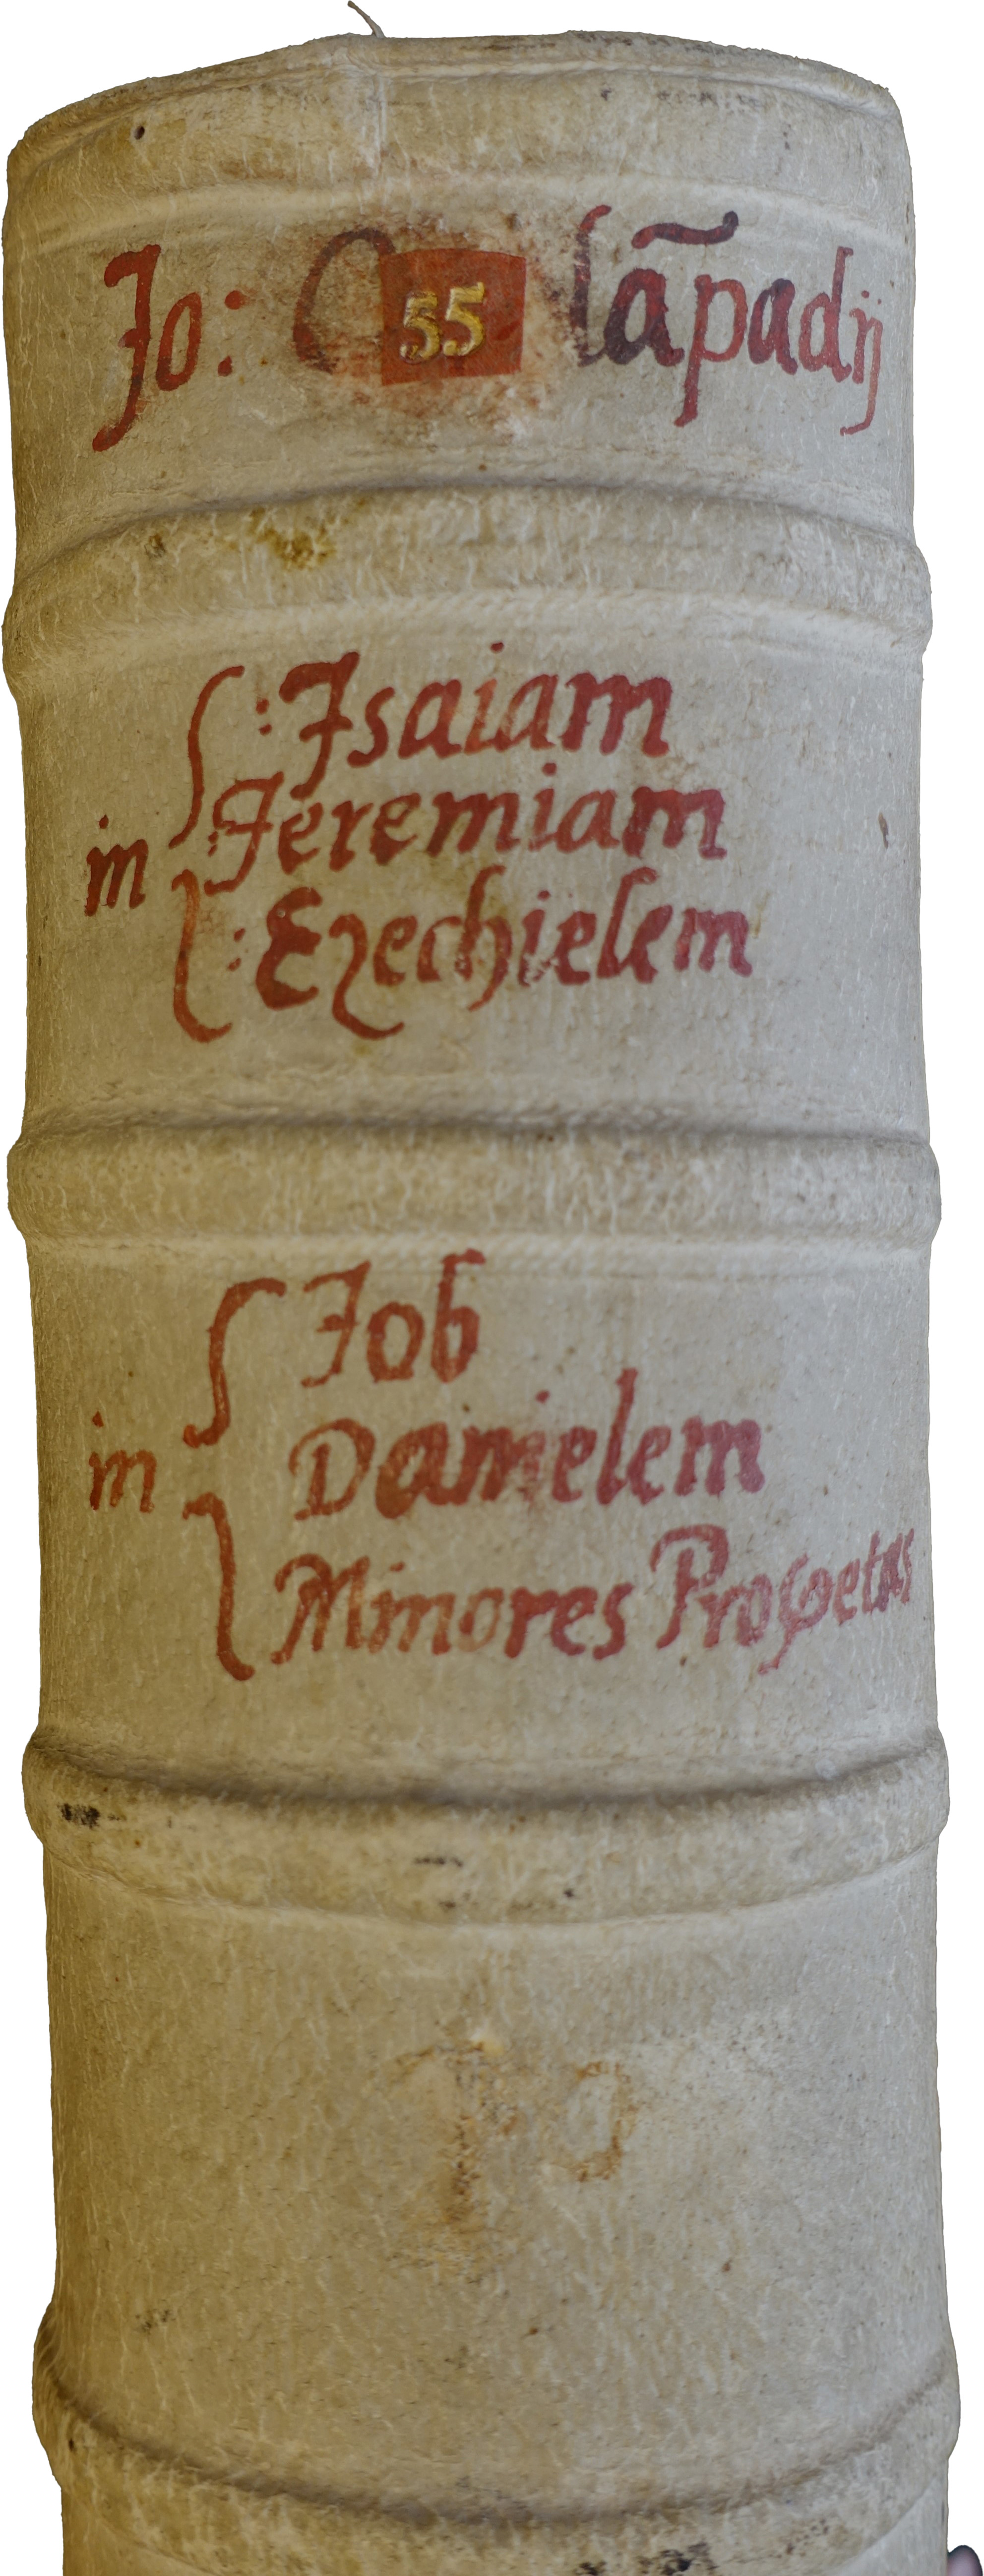 Jo: 55 lãpadij
: Isaiam
in : Jeremiam
: Ezechielem
Job
in Danielem
Minores Prophetas